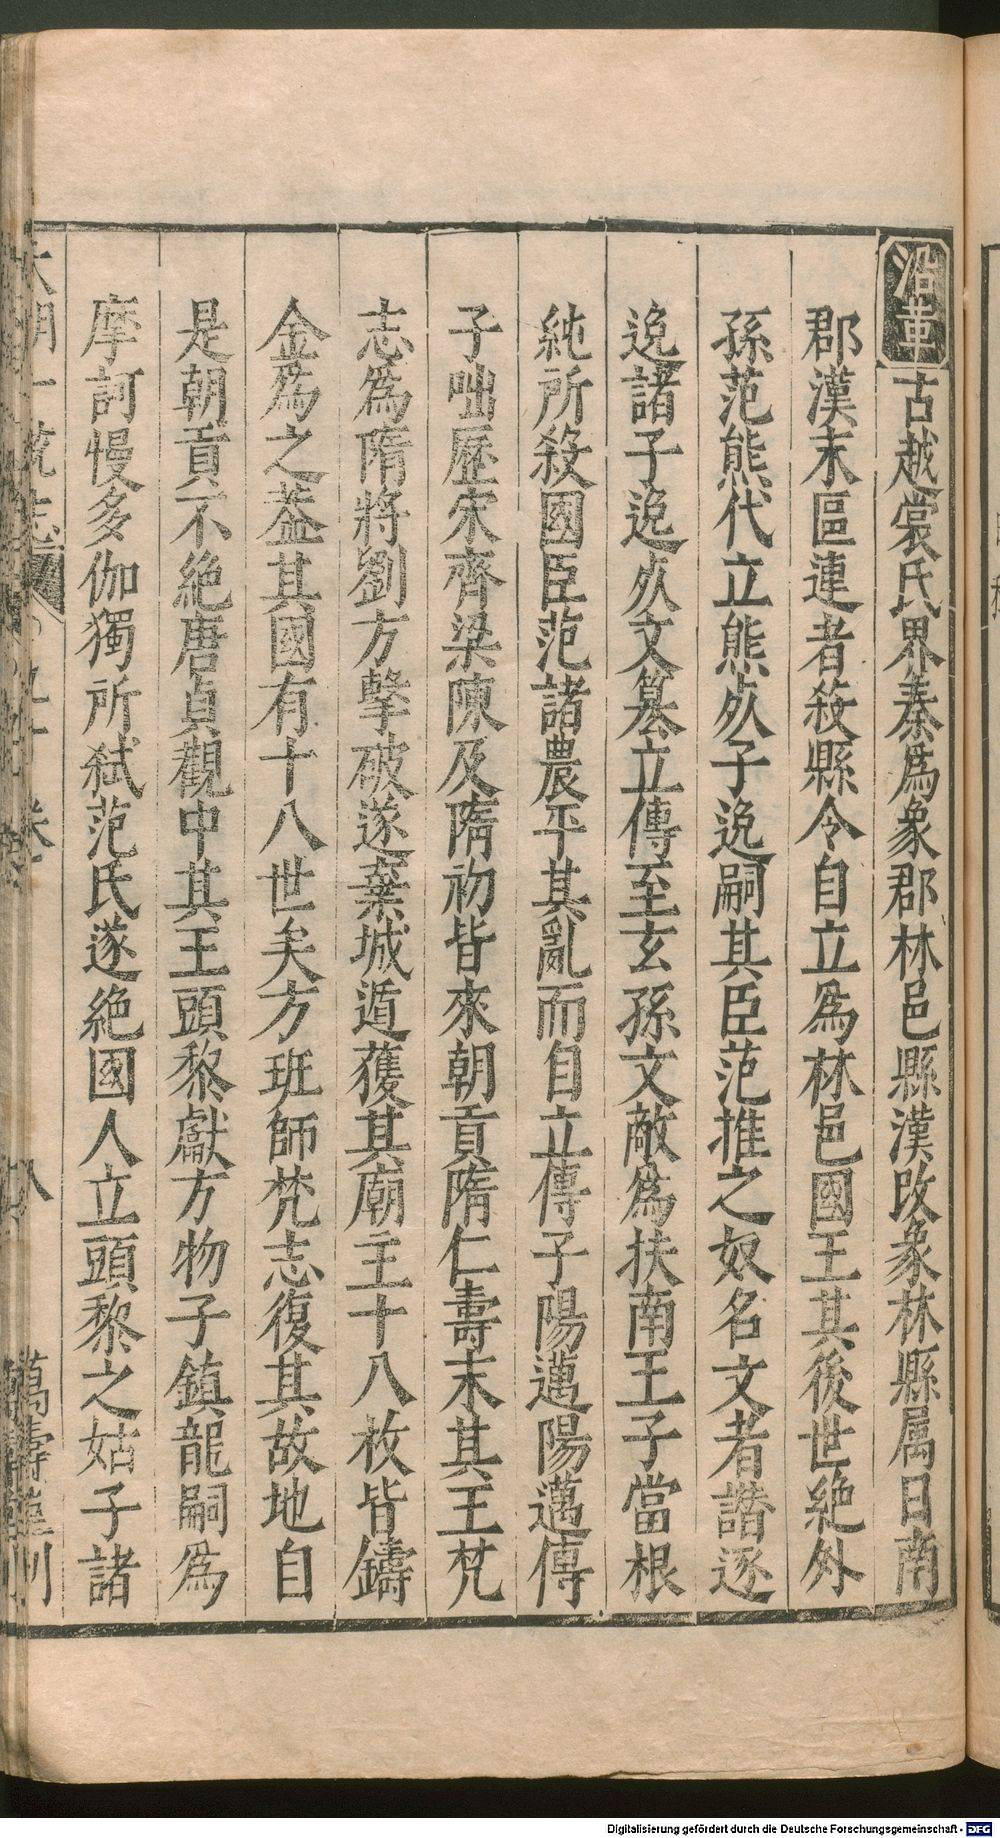 沿革古越裳氏界秦爲象郡林邑縣漢改象林縣属日南
郡漢末區連者殺縣令自立爲林邑國王其後世絶外
孫范熊代立熊死子逸嗣其臣范推之奴名文者譖逐
逸諸子逸死文篡立傳至玄孫文敵爲扶南王子當根
純所殺國臣范諸農平其亂而自立傳子陽邁陽邁傳
子咄歷宋齊梁陳及隋初皆來朝貢隋仁壽末其王梵
志爲隋將劉方擊破遂棄城遁獲其廟主十八枚皆鑄
金爲之葢其國有十八世矣方班師梵志復其故地自
是朝貢不絶唐貞觀中其王頭黎獻方物子鎮龍嗣爲
摩訶慢多伽獨所弑范氏遂絶國人立頭黎之姑子諸
大明一統志 九十卷 八 萬壽堂刊
Digitalisierung gefördert durch die Deutsche Forschungsgemeinschaft - DFG